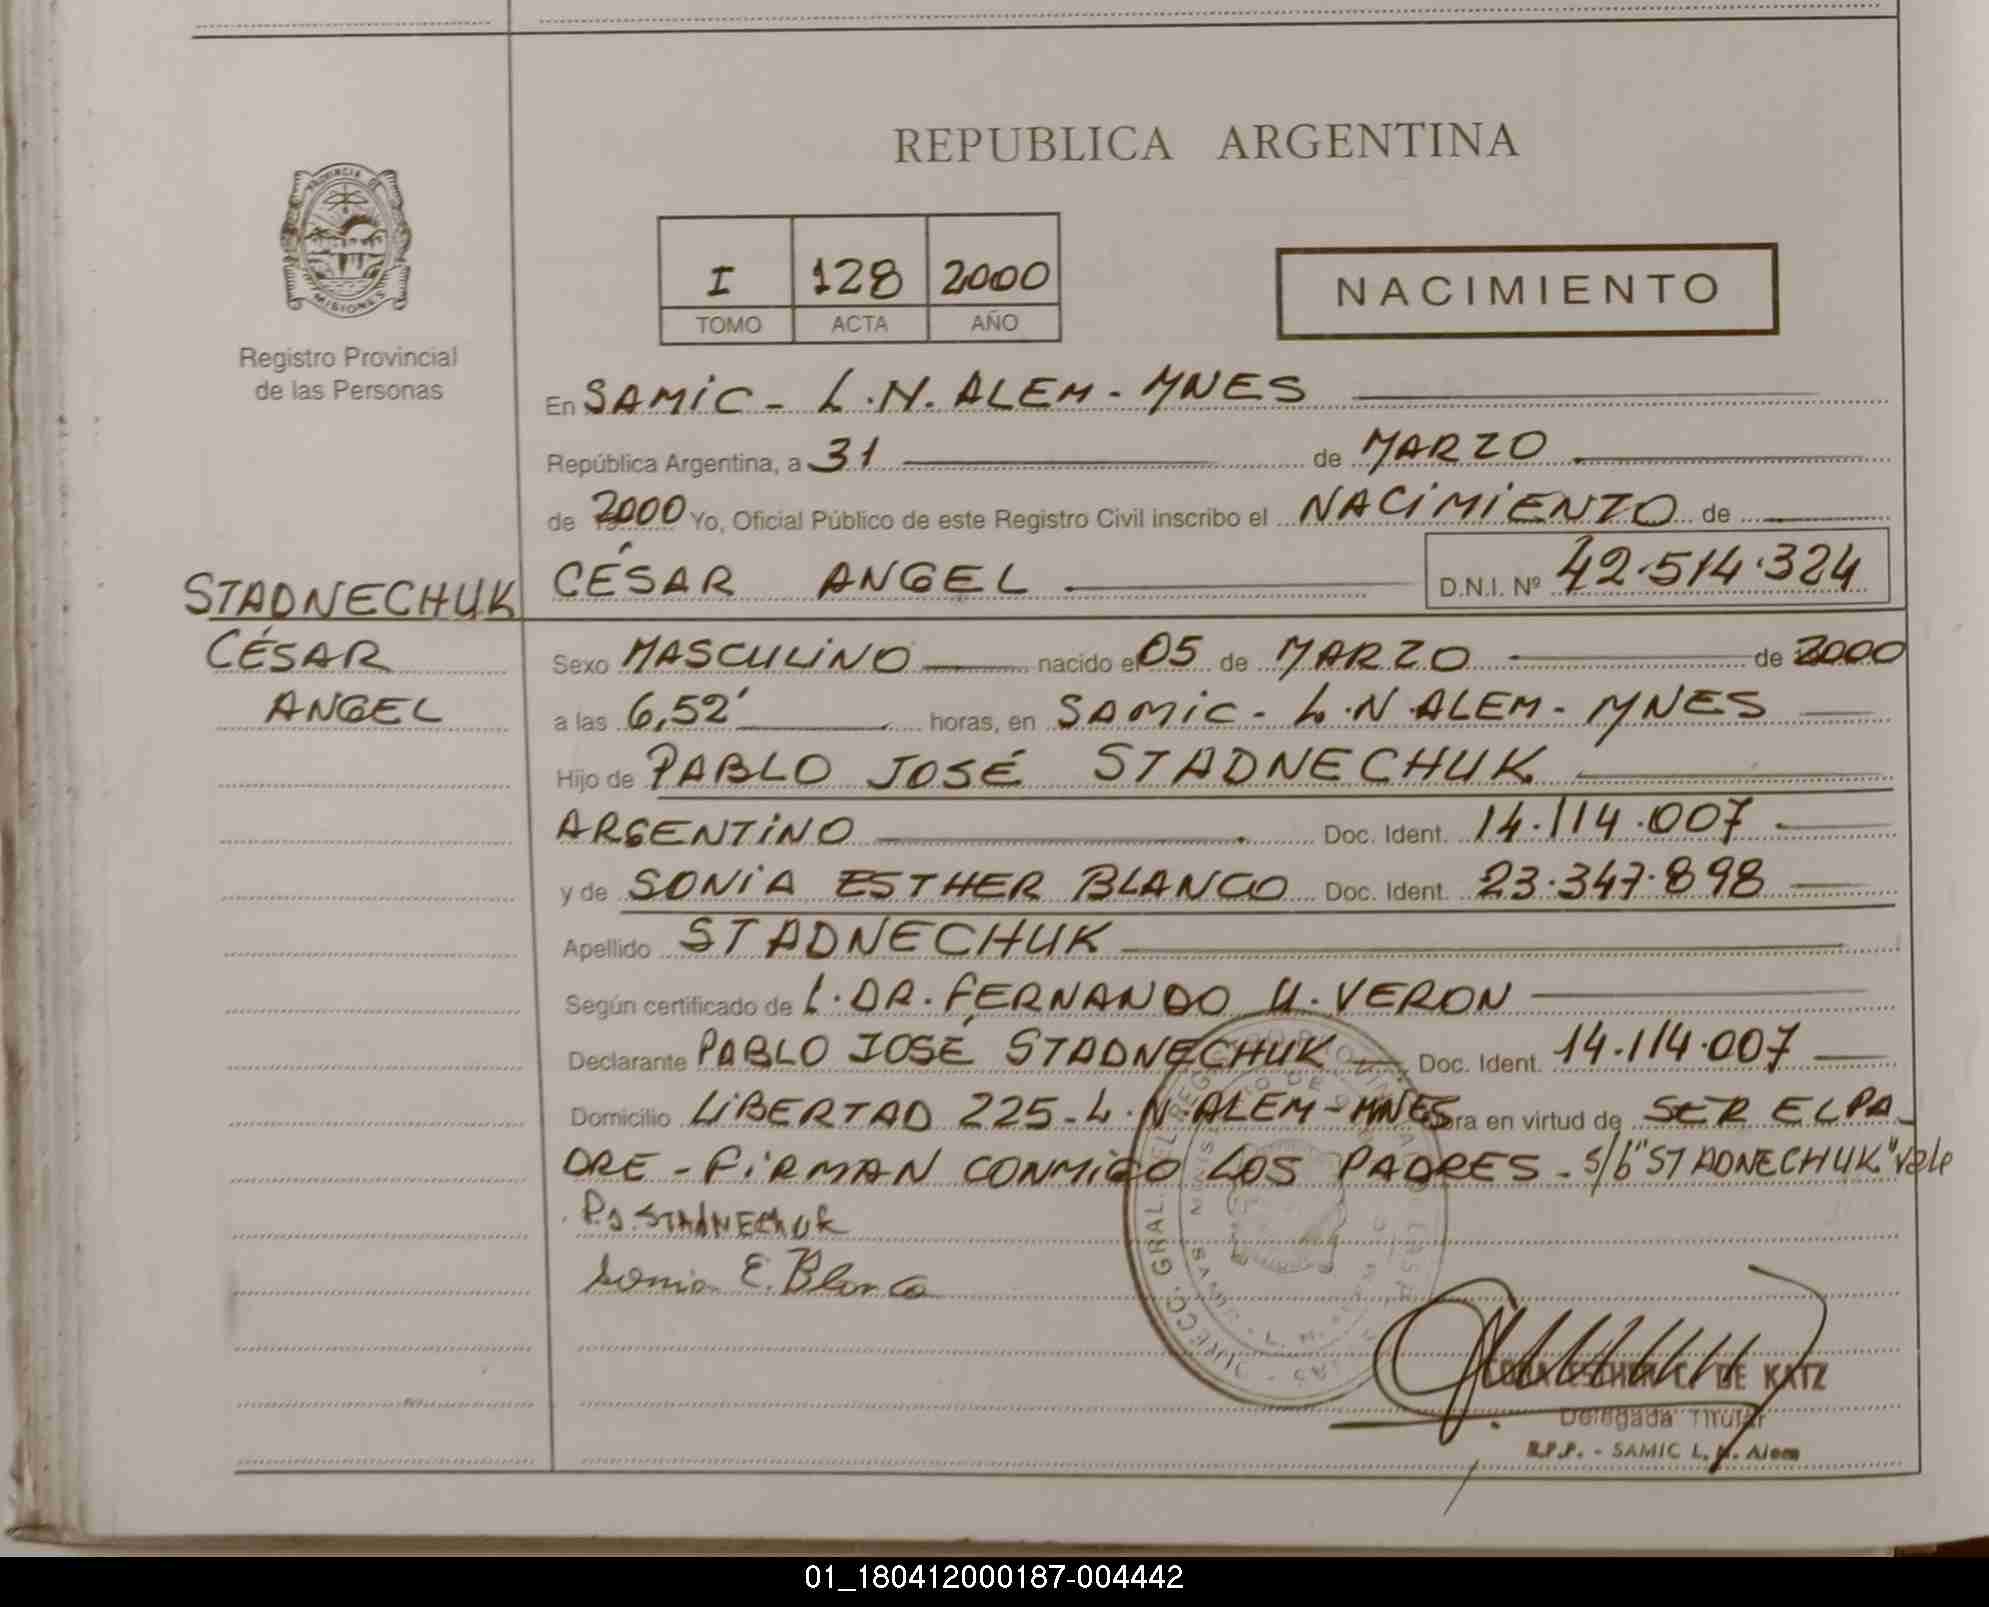 REPUBLICA ARGENTINA
PROVINCIA DE
MISIONES
Registro Provincial
de las Personas
I 128 2000
TOMO ACTA AÑO
NACIMIENTO
En SAMIC - L.N. ALEM - MNES
República Argentina, a 31 de MARZO
de 2000 Yo, Oficial Público de este Registro Civil inscribo el NACIMIENTO de
CÉSAR ANGEL D.N.I. Nº 42.514.324
STADNECHUK
CÉSAR
ANGEL
Sexo MASCULINO nacido el 05 de MARZO de 2000
a las 6,52' horas, en SAMIC - L.N. ALEM - MNES
Hijo de PABLO JOSÉ STADNECHUK
ARGENTINO Doc. Ident. 14.114.007
y de SONIA ESTHER BLANCO Doc. Ident. 23.347.898
Apellido STADNECHUK
Según certificado de L. DR. FERNANDO U. VERON
Declarante PABLO JOSÉ STADNECHUK Doc. Ident. 14.114.007
Domicilio LIBERTAD 225 - L.N. ALEM - MNES obra en virtud de SER EL PA-
DRE - FIRMAN CONMIGO LOS PADRES - S/b "STADNECHUK" Vale
P.J. STADNECHUK
Sonia E. Blanco
DE KATZ
Delegada Titular
R.P.P. - SAMIC L. N. Alem
01_180412000187-004442